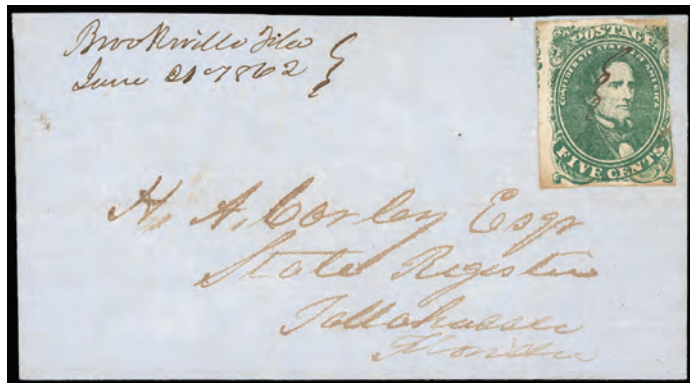 Brooksville Fla
June 21st 1862
POSTAGE
CONFEDERATE STATES OF AMERICA
FIVE CENTS
H. A. Corley Esqr
State Register
Tallahassee
Florida